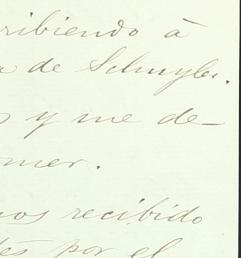 ribiendo á
a de Schuyler.
s y me de-
mer.
mos recibido
tés por el